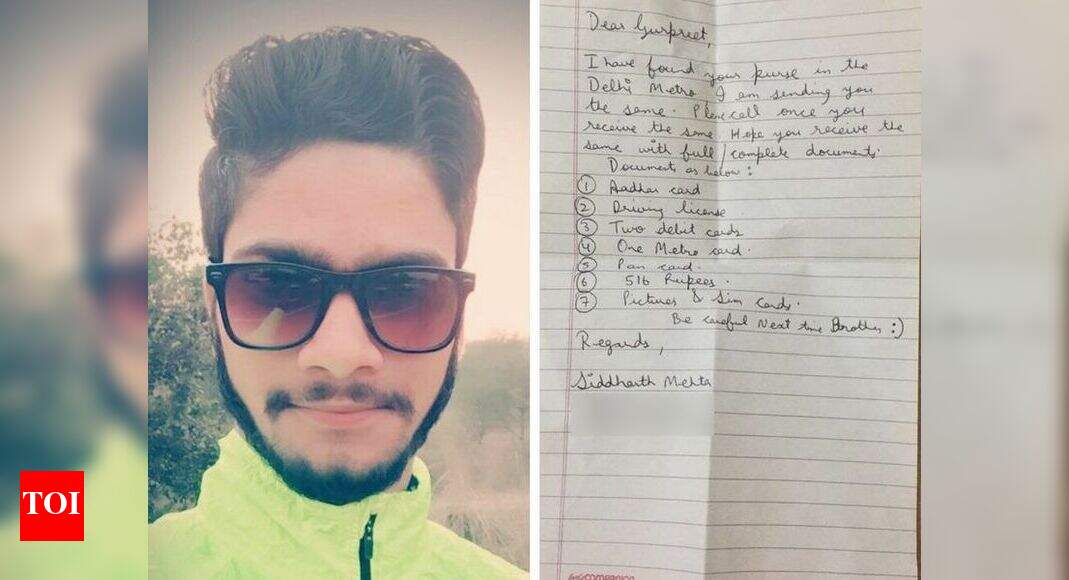 TOI
Dear Gurpreet,
I have found your purse in the
Delhi Metro, I am sending you
the same. Please call once you
receive the same. Hope you receive the
same with full / complete documents.
Documents as below :
① Aadhar card
② Driving license
③ Two debit cards
④ One Metro card.
⑤ Pan card.
⑥ 516 Rupees.
⑦ Pictures & Sim cards.
Be careful Next time Brother :)
Regards,
Siddharth Mehta